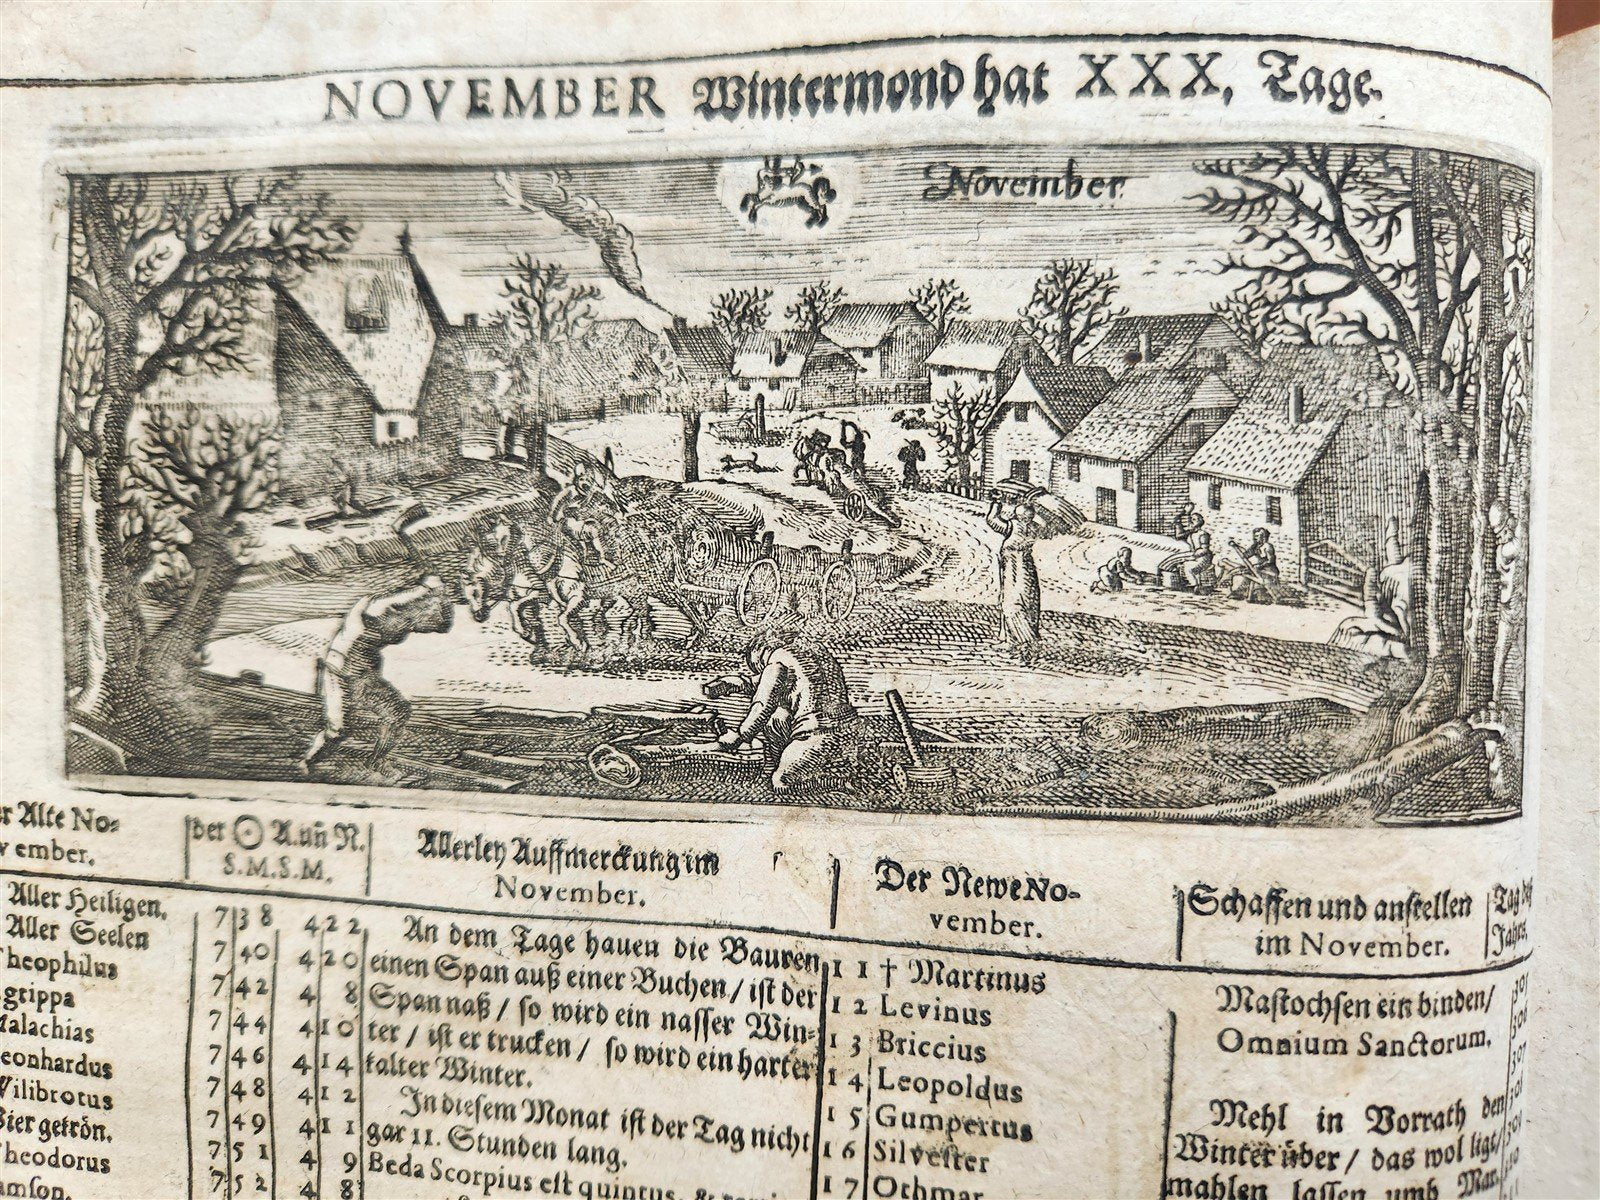 NOVEMBER Wintermond hat XXX, Tage.
November.
Alte No⸗
vember.
der ☉ A. uñ N.
S. M. S. M.
Allerley Auffmerckung im
November.
Der Newe No-
vember.
Schaffen und anstellen
im November.
Tag der
Jahrs.
Aller Heiligen.
Aller Seelen
Theophilus
grippa
Malachias
Leonhardus
Wilibrotus
Vier gekrön.
Theodorus
7 38 4 22
7 40 4 20
7 42 4 8
7 44 4 10
7 46 4 14
7 48 4 12
7 49 4 11
7 51 4 9
7 52 4 8
An dem Tage hauen die Bauren
einen Span auß einer Buchen / ist der
Span naß / so wird ein nasser Win⸗
ter / ist er trucken / so wird ein harter
kalter Winter.
In diesem Monat ist der Tag nicht
gar 11. Stunden lang.
Beda Scorpius est quintus,
11 † Martinus
12 Levinus
13 Briccius
14 Leopoldus
15 Gumpertus
16 Silvester
17 Othmar
Mastochsen ein binden/
Omnium Sanctorum.
Mehl in Vorrath den
Winter über / das wol ligt/
mahlen lassen umb Mar⸗
305
306
307